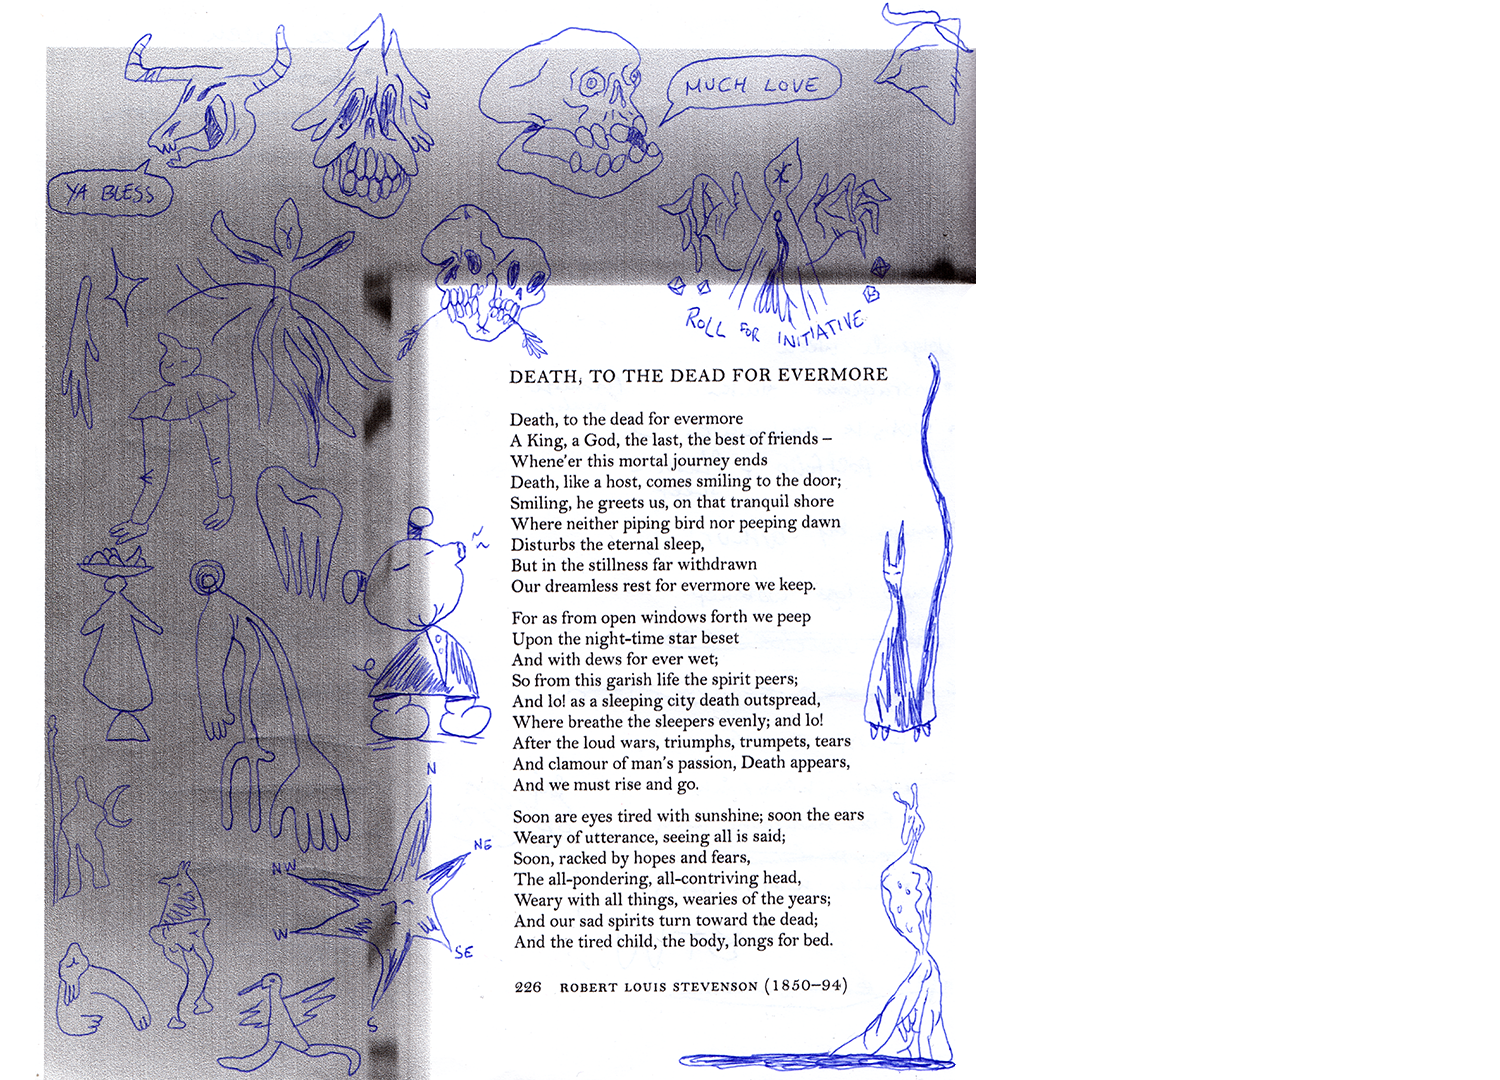 MUCH LOVE
YA BLESS
ROLL FOR INITIATIVE
DEATH, TO THE DEAD FOR EVERMORE
Death, to the dead for evermore
A King, a God, the last, the best of friends –
Whene'er this mortal journey ends
Death, like a host, comes smiling to the door;
Smiling, he greets us, on that tranquil shore
Where neither piping bird nor peeping dawn
Disturbs the eternal sleep,
But in the stillness far withdrawn
Our dreamless rest for evermore we keep.
For as from open windows forth we peep
Upon the night-time star beset
And with dews for ever wet;
So from this garish life the spirit peers;
And lo! as a sleeping city death outspread,
Where breathe the sleepers evenly; and lo!
After the loud wars, triumphs, trumpets, tears
And clamour of man's passion, Death appears,
And we must rise and go.
Soon are eyes tired with sunshine; soon the ears
Weary of utterance, seeing all is said;
Soon, racked by hopes and fears,
The all-pondering, all-contriving head,
Weary with all things, wearies of the years;
And our sad spirits turn toward the dead;
And the tired child, the body, longs for bed.
226 ROBERT LOUIS STEVENSON (1850–94)
N
NE
NW
W
SE
S